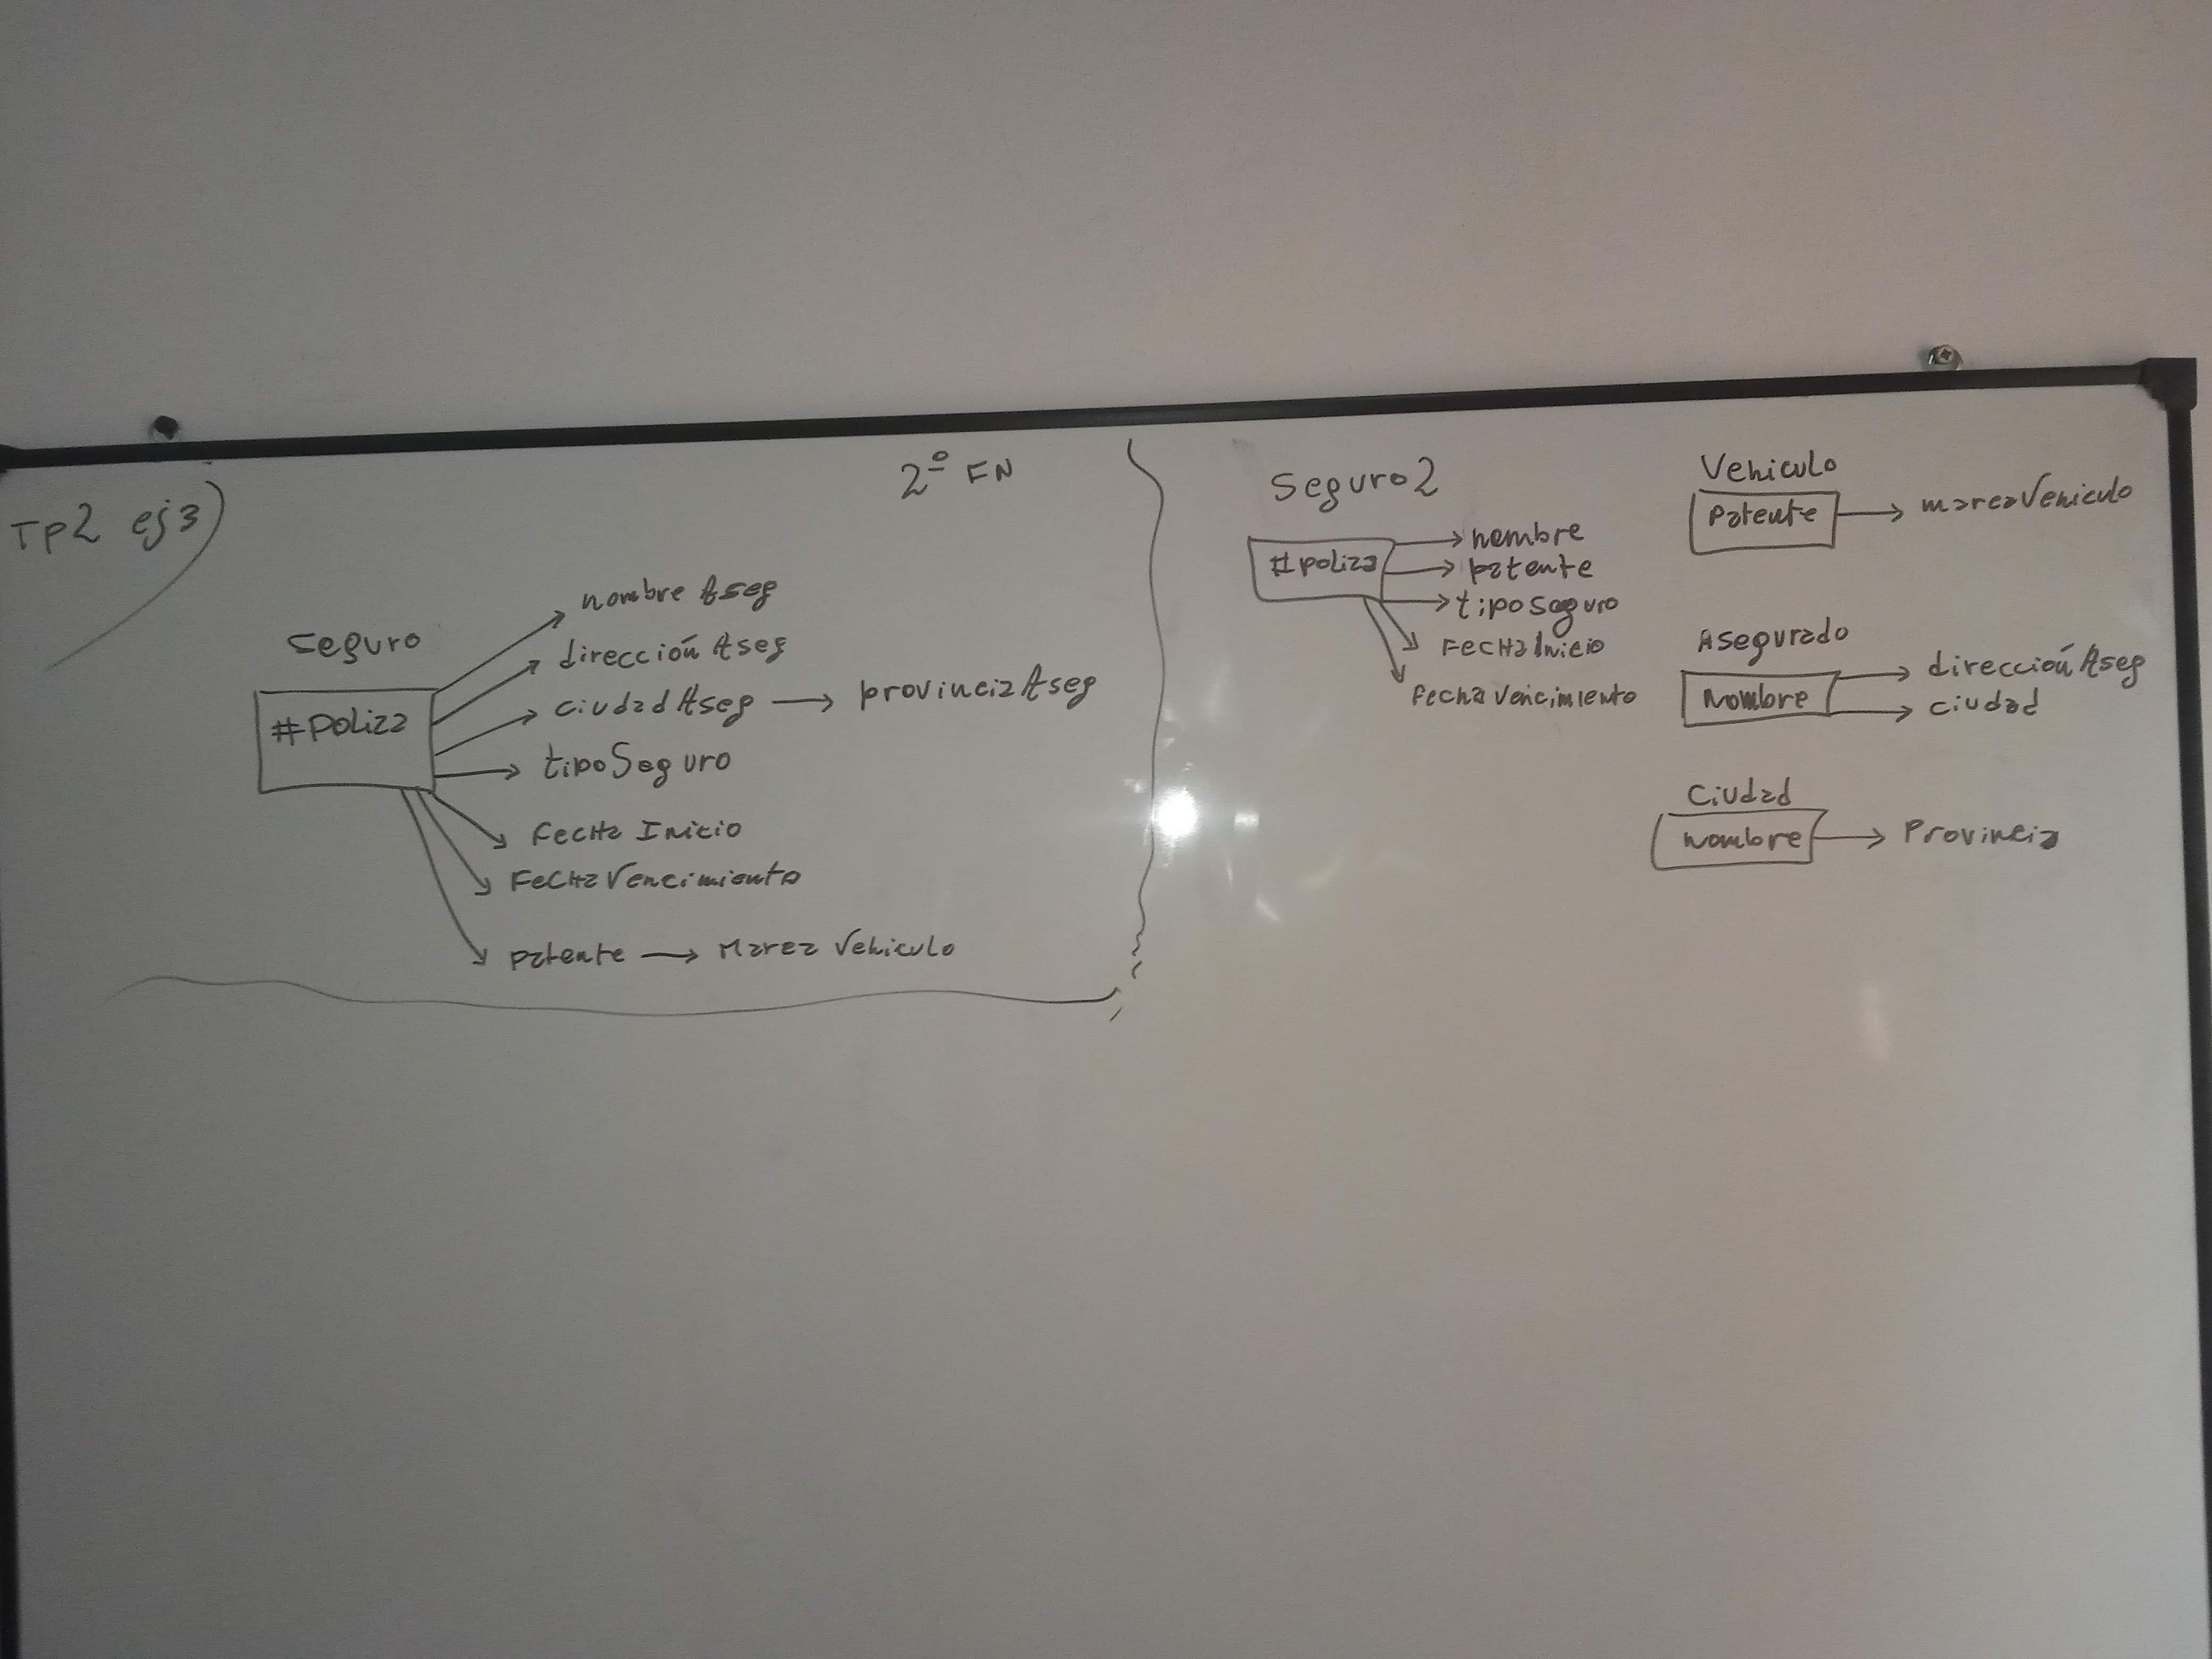 TP2 ej3)
2º FN
Seguro
#Poliza
nombre Aseg
dirección Aseg
ciudad Aseg → provincia Aseg
tipo Seguro
Fecha Inicio
Fecha Vencimiento
patente → Marca Vehiculo
Seguro2
#poliza
nombre
patente
tipo seguro
Fecha Inicio
Fecha Vencimiento
Vehiculo
Patente → marca Vehiculo
Asegurado
Nombre
dirección Aseg
ciudad
Ciudad
nombre → Provincia